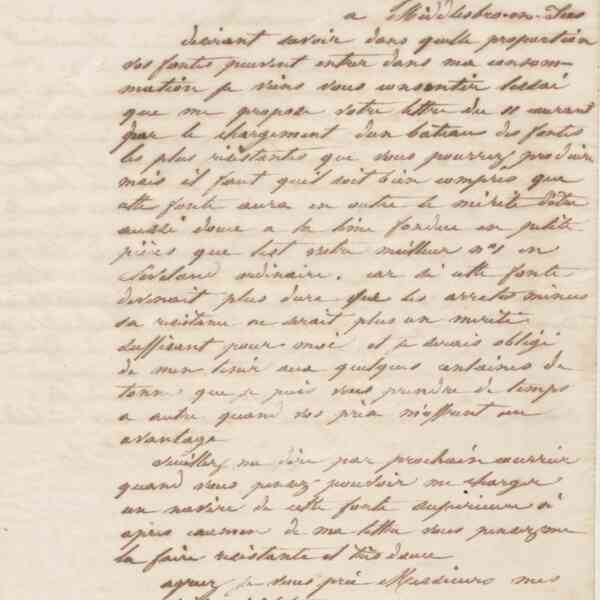 a Middlesbro-on-Tees
desirant savoir dans quelle proportion
vos fontes peuvent entrer dans ma consom-
mation je viens vous consentir lessai
que me propose votre lettre du 11 courant
par le chargement d'un bateau des fontes
les plus résistantes que vous pourrez produire
mais il faut quil soit bien compris que
cette fonte aura en outre le mérite d'être
aussi douce a la lime fondue en petite
pièces que l'est votre meilleur n° 1 en
Cleveland ordinaire. car si cette fonte
devenait plus dure que les arretes minces
sa resistance ne serait plus un merite
suffisant pour moi et je serais obligé
de men tenir aux quelques centaines de
tonnes que je puis vous prendre de temps
a autre quand vos prix m'offrent un
avantage
Veuillez me dire par prochain courrier
quand vous pensez pouvoir me charger
un navire de cette fonte superieure si
après examen de ma lettre vous pensez me
la faire resistante et très douce
agreez je vous prie Messieurs mes